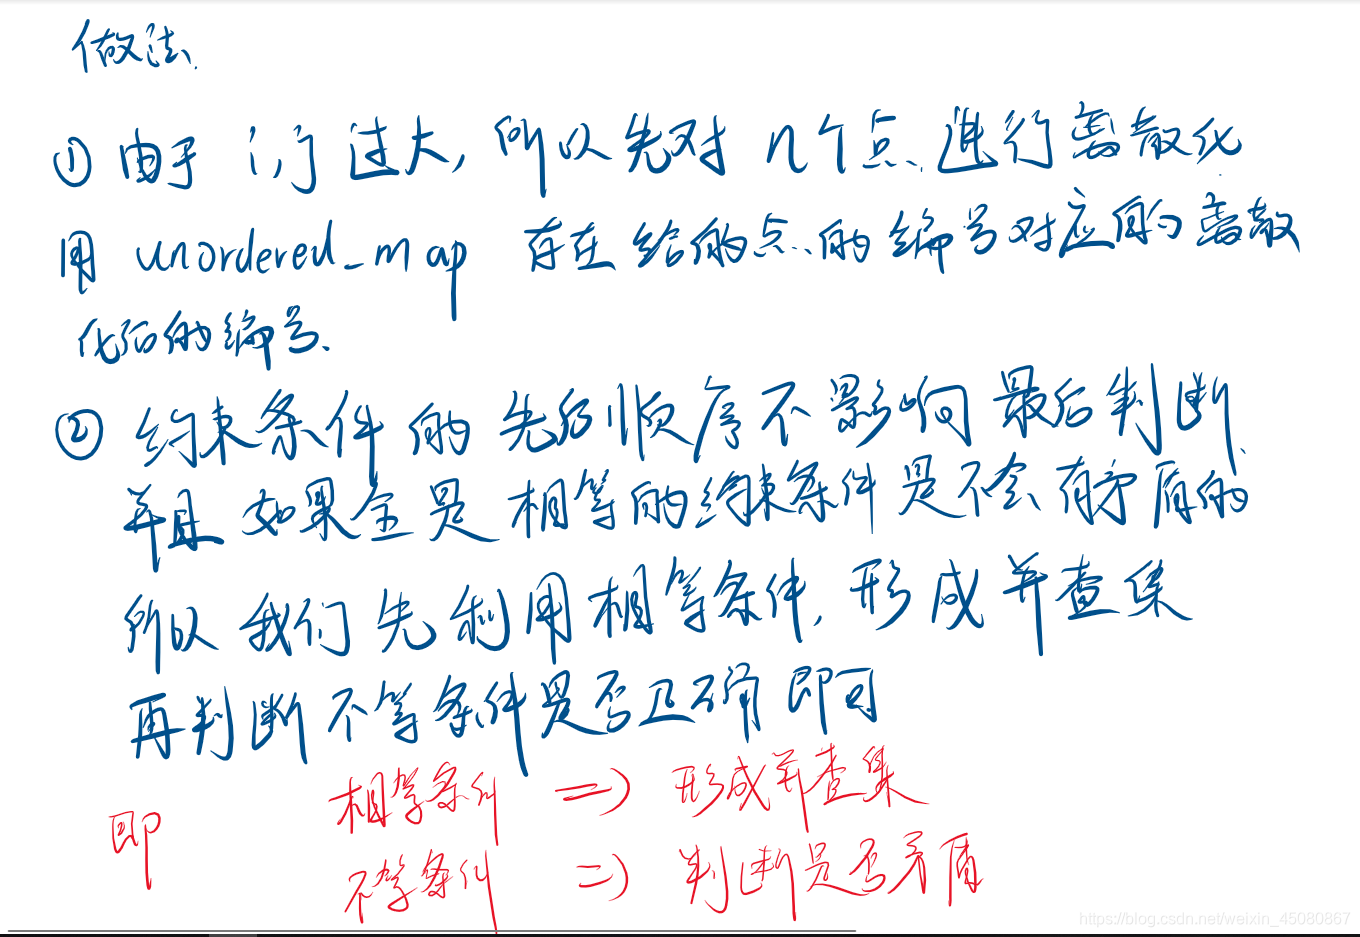 做法.
① 由于 i,j 过大, 所以先对 n个点进行离散化
用 unordered_map 存在给的点的编号对应的离散
化后的编号.
② 约束条件的先后顺序不影响最后判断
并且如果全是相等的约束条件是不会有矛盾的
所以我们先利用相等条件, 形成并查集
再判断不等条件是否正确即可
即 相等条件 => 形成并查集
不等条件 => 判断是否矛盾
https://blog.csdn.net/weixin_45080867